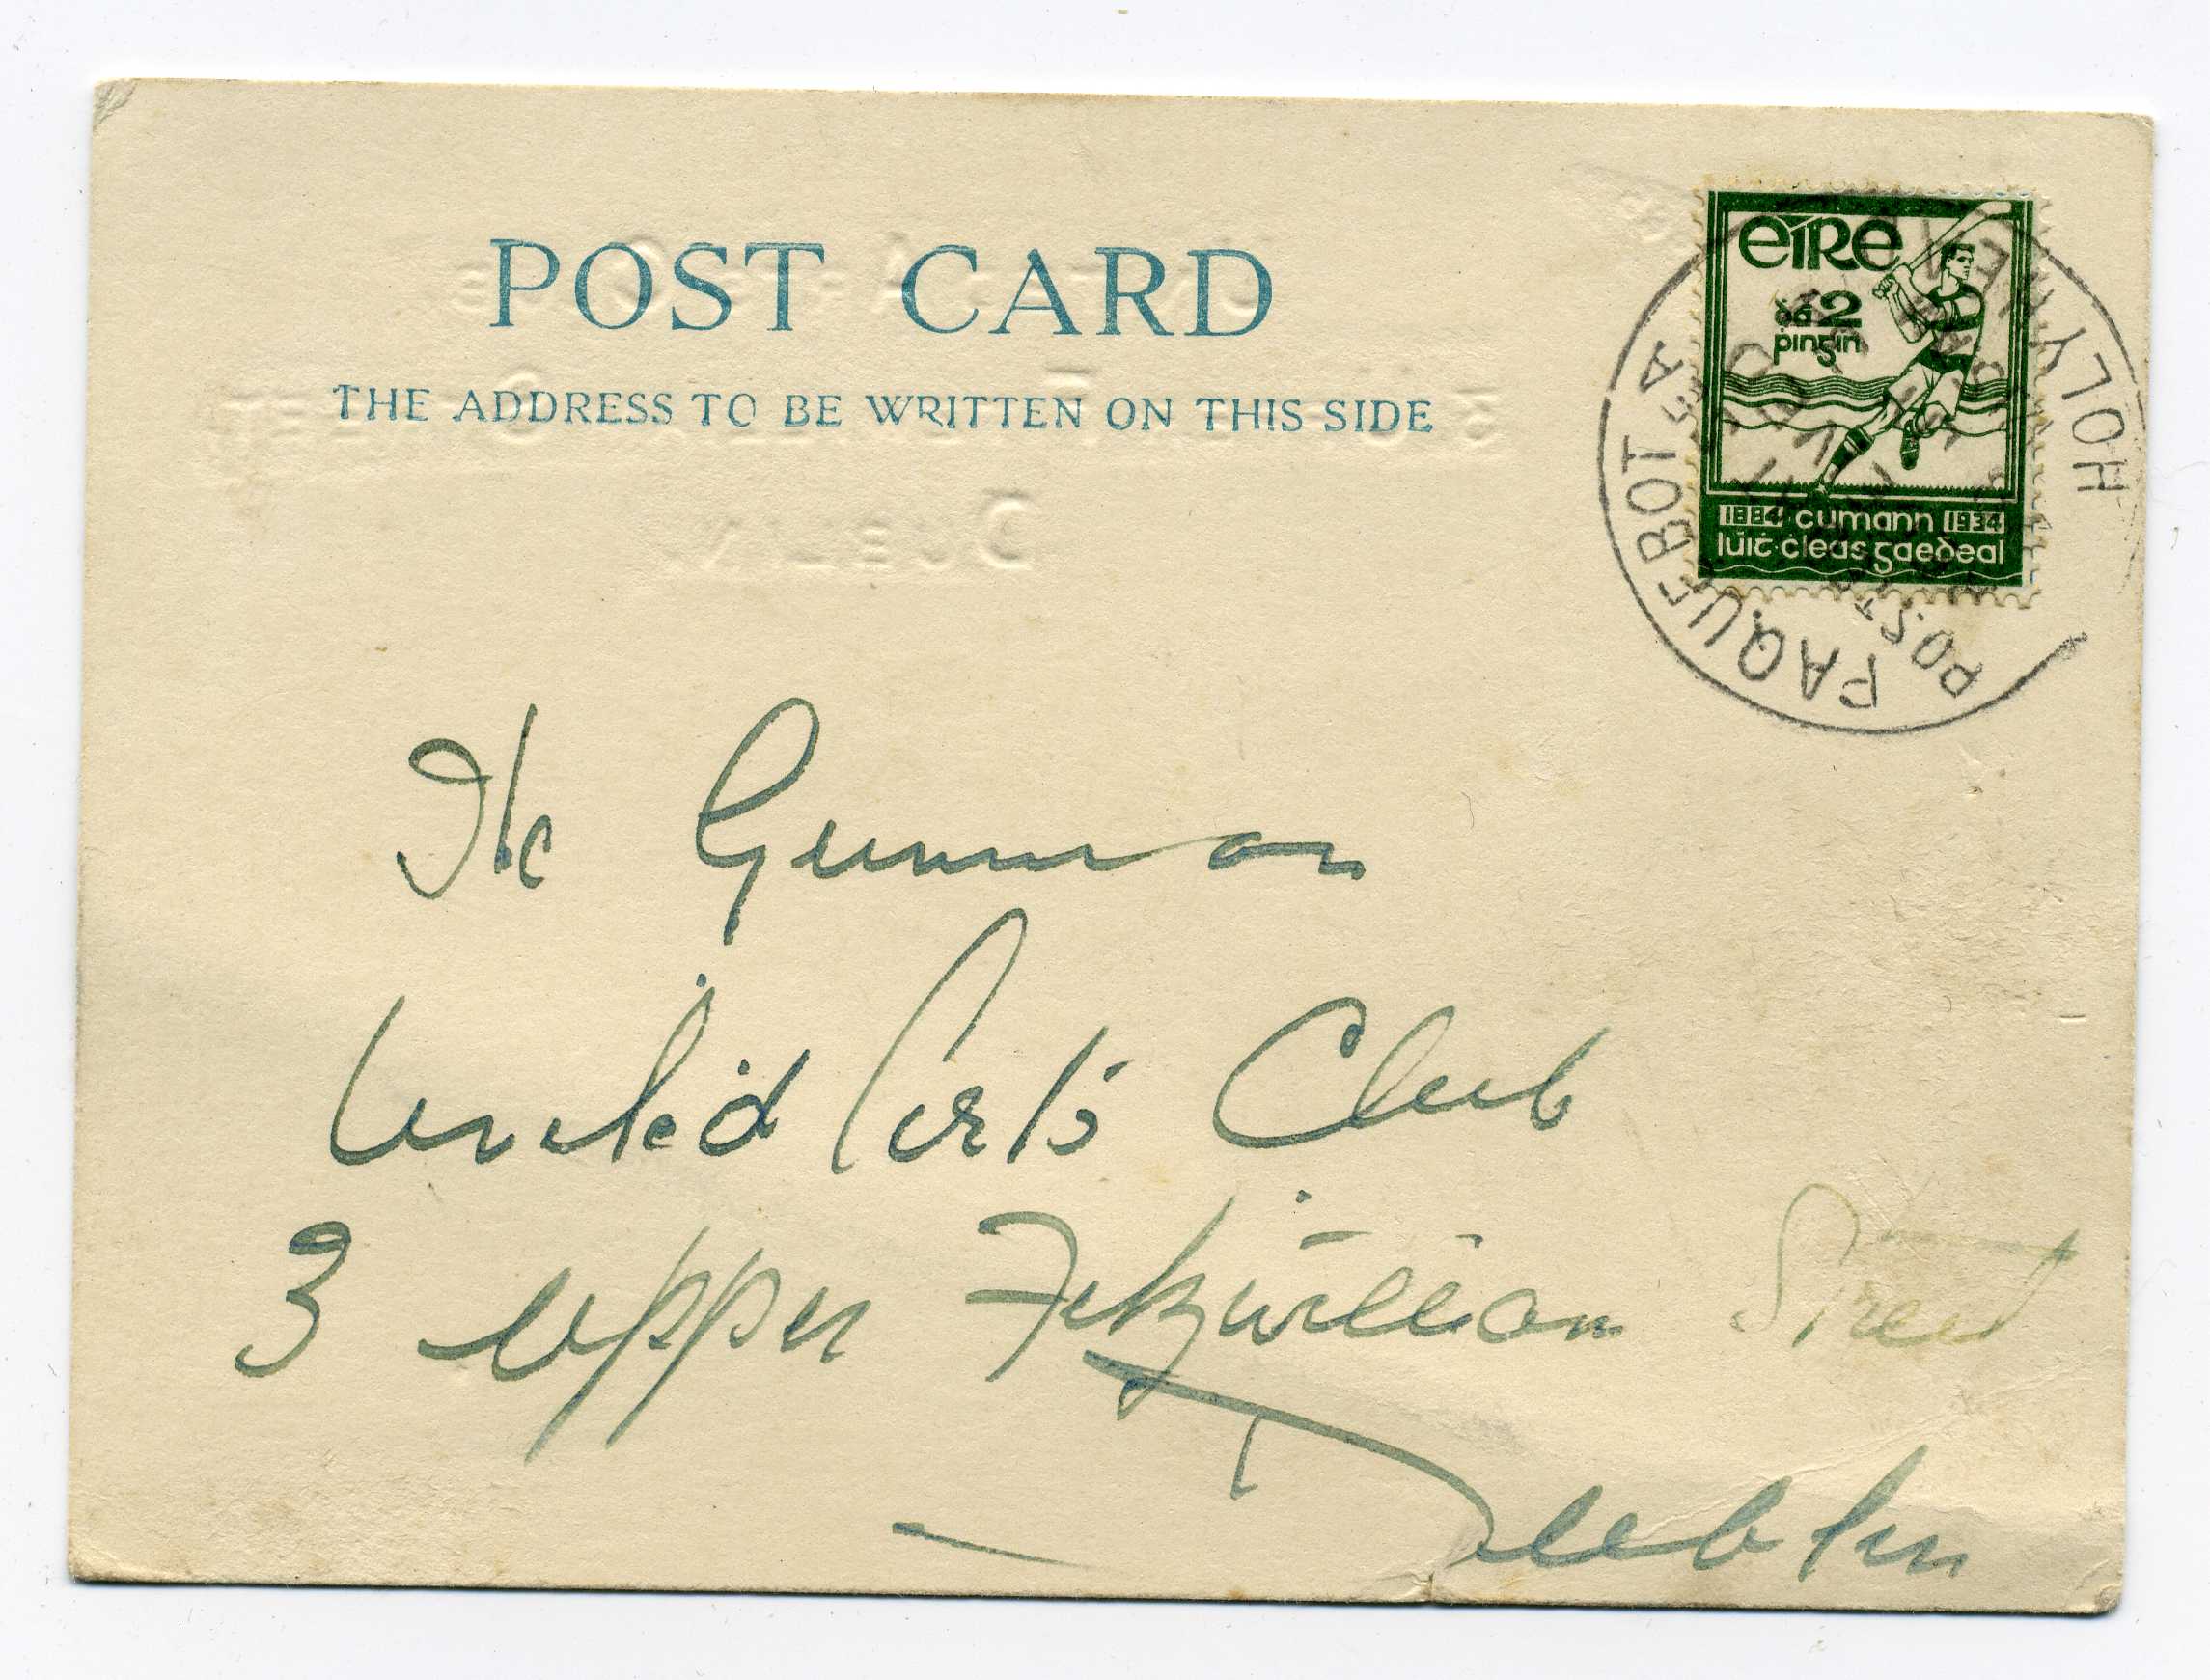 POST CARD
THE ADDRESS TO BE WRITTEN ON THIS SIDE
éire
dá 2
pingin
1884 cumann 1934
lúiṫ·ċleas gaeḋeal
HOLYHEAD
PAQUEBOT
POSTED
DUBLIN
The Gunman
United Arts Club
3 upper Fitzwilliam Street
Dublin